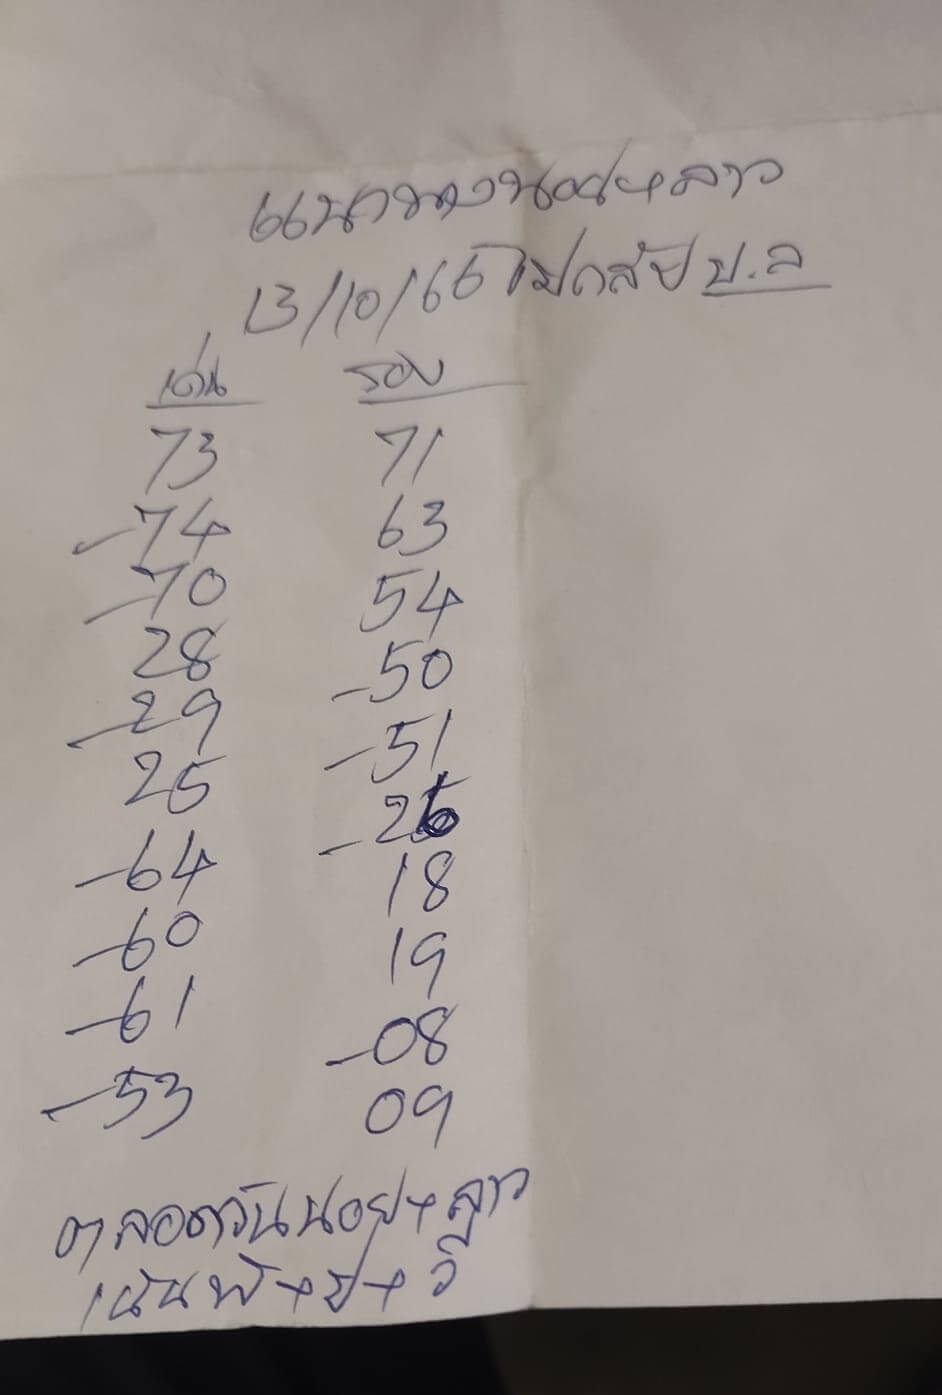 แนวทางนอย+ลาว
13/10/66 ปล
เด่น รอง
73 71
-74 63
-70 54
28 -50
-29 -51
25 -26
-64 18
-60 19
-61 -08
-53 09
ตลอดวันนอย+ลาว
เน้นพิ+ป+วี